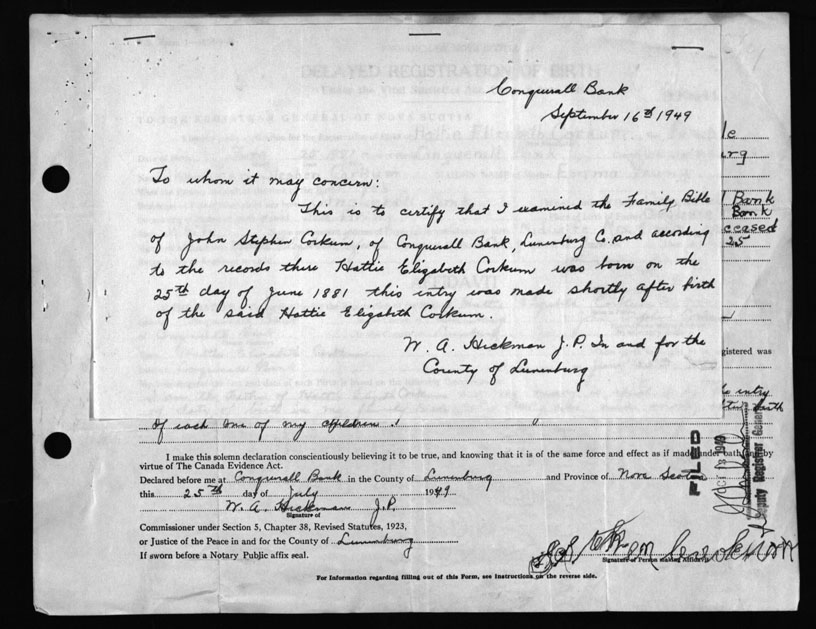 Conquerall Bank
September 16th 1949
To whom it may concern:
This is to certify that I examined the Family Bible
of John Stephen Corkum, of Conquerall Bank, Lunenburg Co. and according
to the records there Hattie Elizabeth Corkum was born on the
25th day of June 1881 this entry was made shortly after birth
of the said Hattie Elizabeth Corkum.
W. A. Hickman J.P. In and for the
County of Lunenburg
DELAYED REGISTRATION OF BIRTH
Bank
Bank
25
gistered was
entry
birth
of each one of my children
I make this solemn declaration conscientiously believing it to be true, and knowing that it is of the same force and effect as if made under oath and by
virtue of The Canada Evidence Act.
Declared before me at Conquerall Bank in the County of Lunenburg and Province of Nova Scotia
this 25th day of July 1949
W. A. Hickman J.P.
Signature of
Commissioner under Section 5, Chapter 38, Revised Statutes, 1923,
or Justice of the Peace in and for the County of Lunenburg
If sworn before a Notary Public affix seal.
Signature of Person making Affidavit
For Information regarding filling out of this Form, see Instructions on the reverse side.
FILED
OCT 13 1949
Deputy Registrar General